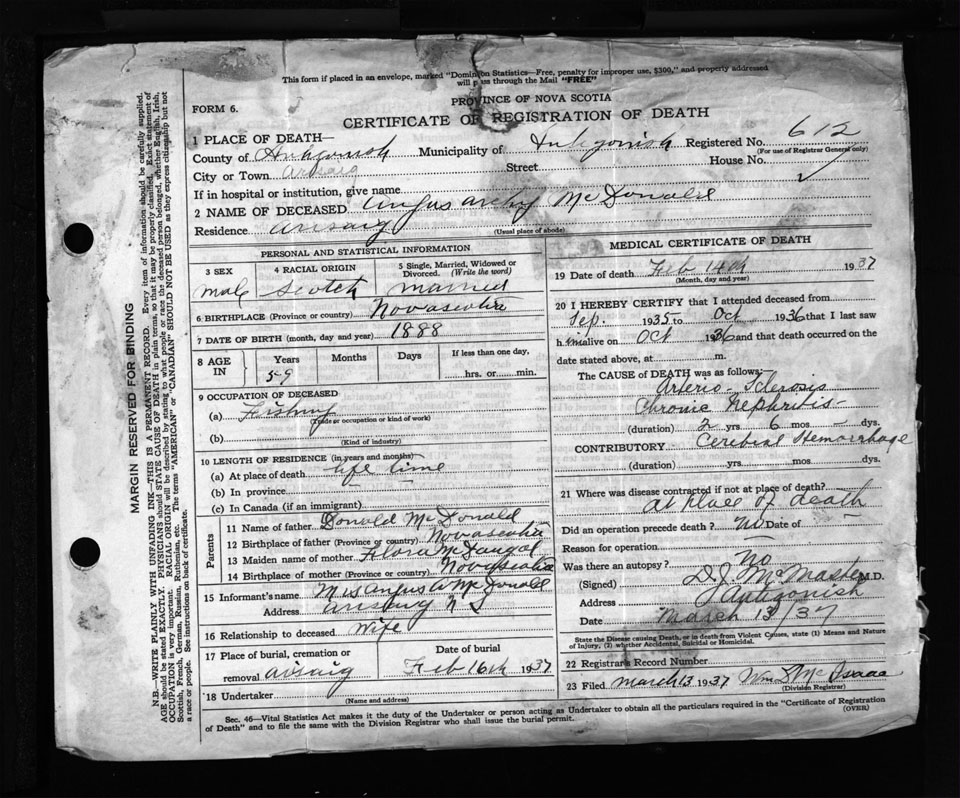 This form if placed in an envelope, marked "Dominion Statistics—Free, penalty for improper use, $300," and properly addressed
will pass through the Mail "FREE"
FORM 6.
PROVINCE OF NOVA SCOTIA
CERTIFICATE OF REGISTRATION OF DEATH
1 PLACE OF DEATH—
County of Antigonish Municipality of Antigonish Registered No. 612
(For use of Registrar General only)
City or Town Arisaig Street House No.
If in hospital or institution, give name
2 NAME OF DECEASED Angus Archy McDonald
Residence arisaig
(Usual place of abode)
PERSONAL AND STATISTICAL INFORMATION
3 SEX 4 RACIAL ORIGIN 5 Single, Married, Widowed or Divorced. (Write the word)
Male Scotch married
6 BIRTHPLACE (Province or country) Novascotia
7 DATE OF BIRTH (month, day and year) 1888
8 AGE IN Years Months Days If less than one day,
59 hrs. or min.
9 OCCUPATION OF DECEASED
(a) Fishing
(Trade or occupation or kind of work)
(b)
(Kind of industry)
10 LENGTH OF RESIDENCE (in years and months)
(a) At place of death life time
(b) In province
(c) In Canada (if an immigrant)
Parents
11 Name of father Donald McDonald
12 Birthplace of father (Province or country) Novascotia
13 Maiden name of mother Flora McDougal
14 Birthplace of mother (Province or country) Novascotia
15 Informant's name Mrs Angus A McDonald
Address arisaig N S
16 Relationship to deceased Wife
17 Place of burial, cremation or removal Date of burial
arisaig Feb 16th 1937
18 Undertaker
(Name and address)
MEDICAL CERTIFICATE OF DEATH
19 Date of death Feb 14th 1937
(Month, day and year)
20 I HEREBY CERTIFY that I attended deceased from
Sep. 1935 to Oct 1936 that I last saw
him alive on Oct 1936 and that death occurred on the
date stated above, at m.
The CAUSE of DEATH was as follows:
Arterio-Sclerosis
Chronic Nephritis
(duration) 2 yrs 6 mos – dys.
CONTRIBUTORY Cerebral Hemorrhage
(duration) yrs. mos dys.
21 Where was disease contracted if not at place of death?
At place of death
Did an operation precede death? No Date of
Reason for operation —
Was there an autopsy? No
(Signed) D J McMaster M.D.
Address Antigonish
Date March 13/37
State the Disease causing Death, or in death from Violent Causes, state (1) Means and Nature
of Injury, (2) whether Accidental, Suicidal or Homicidal.
22 Registrar's Record Number
23 Filed March 13 1937 Wm S McIsaac
(Division Registrar)
Sec. 46—Vital Statistics Act makes it the duty of the Undertaker or person acting as Undertaker to obtain all the particulars required in the "Certificate of Registration
of Death" and to file the same with the Division Registrar who shall issue the burial permit.
(OVER)
MARGIN RESERVED FOR BINDING
N.B.—WRITE PLAINLY WITH UNFADING INK—THIS IS A PERMANENT RECORD. Every item of information should be carefully supplied.
AGE should be stated EXACTLY. PHYSICIANS should STATE CAUSE OF DEATH in plain terms, so that it may be properly classified. Exact statement of
OCCUPATION is very important. RACIAL ORIGIN will be described by stating to what people or race the deceased person belonged, whether English, Irish,
Scottish, French, German, Russian, Ruthenian, etc. The terms "AMERICAN" or "CANADIAN" SHOULD NOT BE USED as they express citizenship but not
a race or people. See instructions on back of certificate.